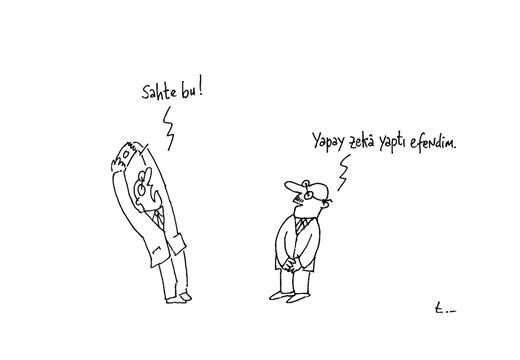 Sahte bu!
Yapay zekâ yaptı efendim.
t._